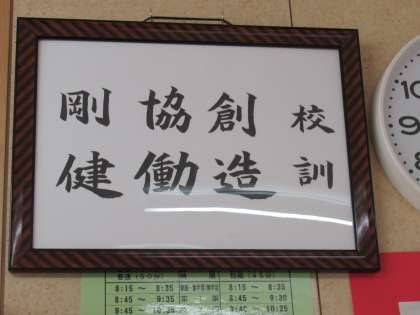 校訓
創造
協働
剛健
10
9
8
8:15 ～ 8:35
8:15 ～ 8:35
8:45 ～ 9:35
8:45 ～ 9:30
9:45 ～ 10:35
9:40 ～ 10:25